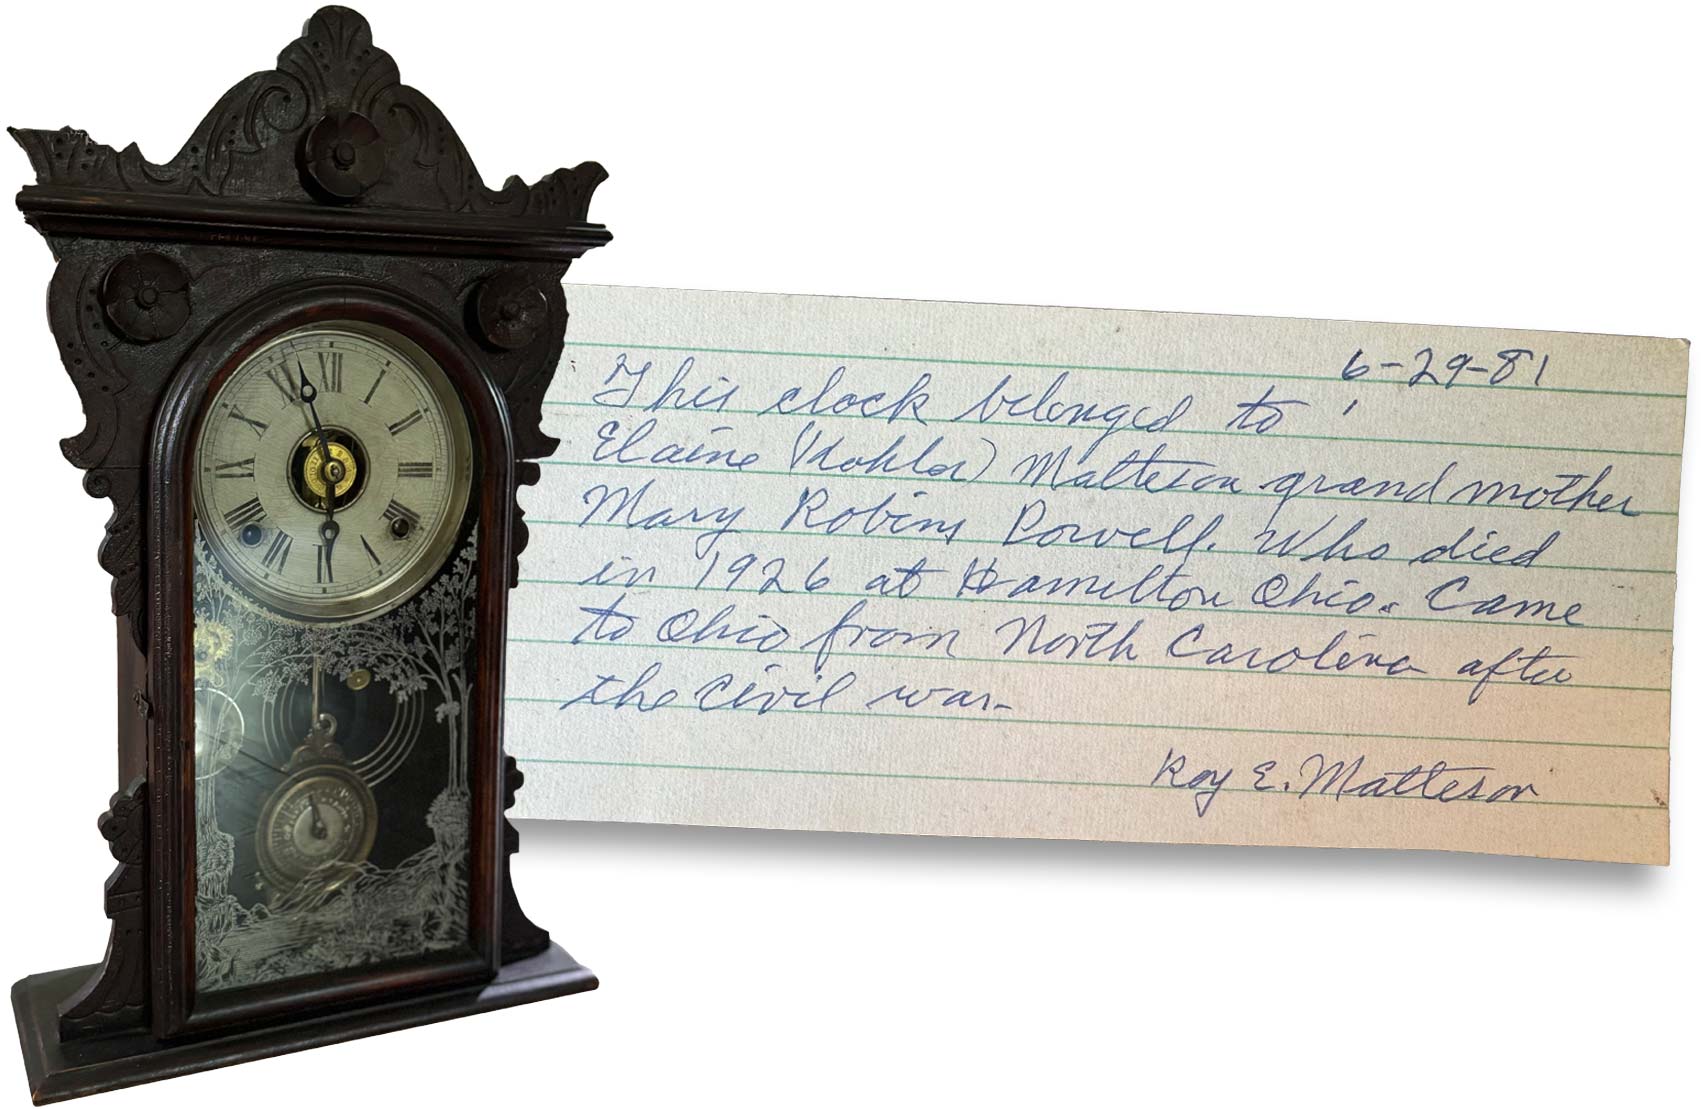 XII
I
II
III
IIII
V
VI
VII
VIII
IX
X
XI
6-29-81
This clock belonged to
Elaine (Kohler) Matteson grand mother
Mary Robins Powell. Who died
in 1926 at Hamilton Ohio. Came
to Ohio from North Carolina after
the Civil war.
Roy E. Matteson